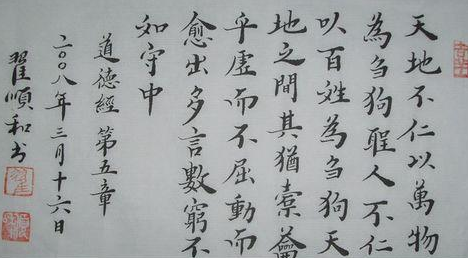 天地不仁以萬物
為刍狗聖人不仁
以百姓為刍狗天
地之間其猶橐籥
乎虛而不屈動而
愈出多言數窮不
如守中
道德經 第五章
二〇〇八年三月十六日
翟順和书